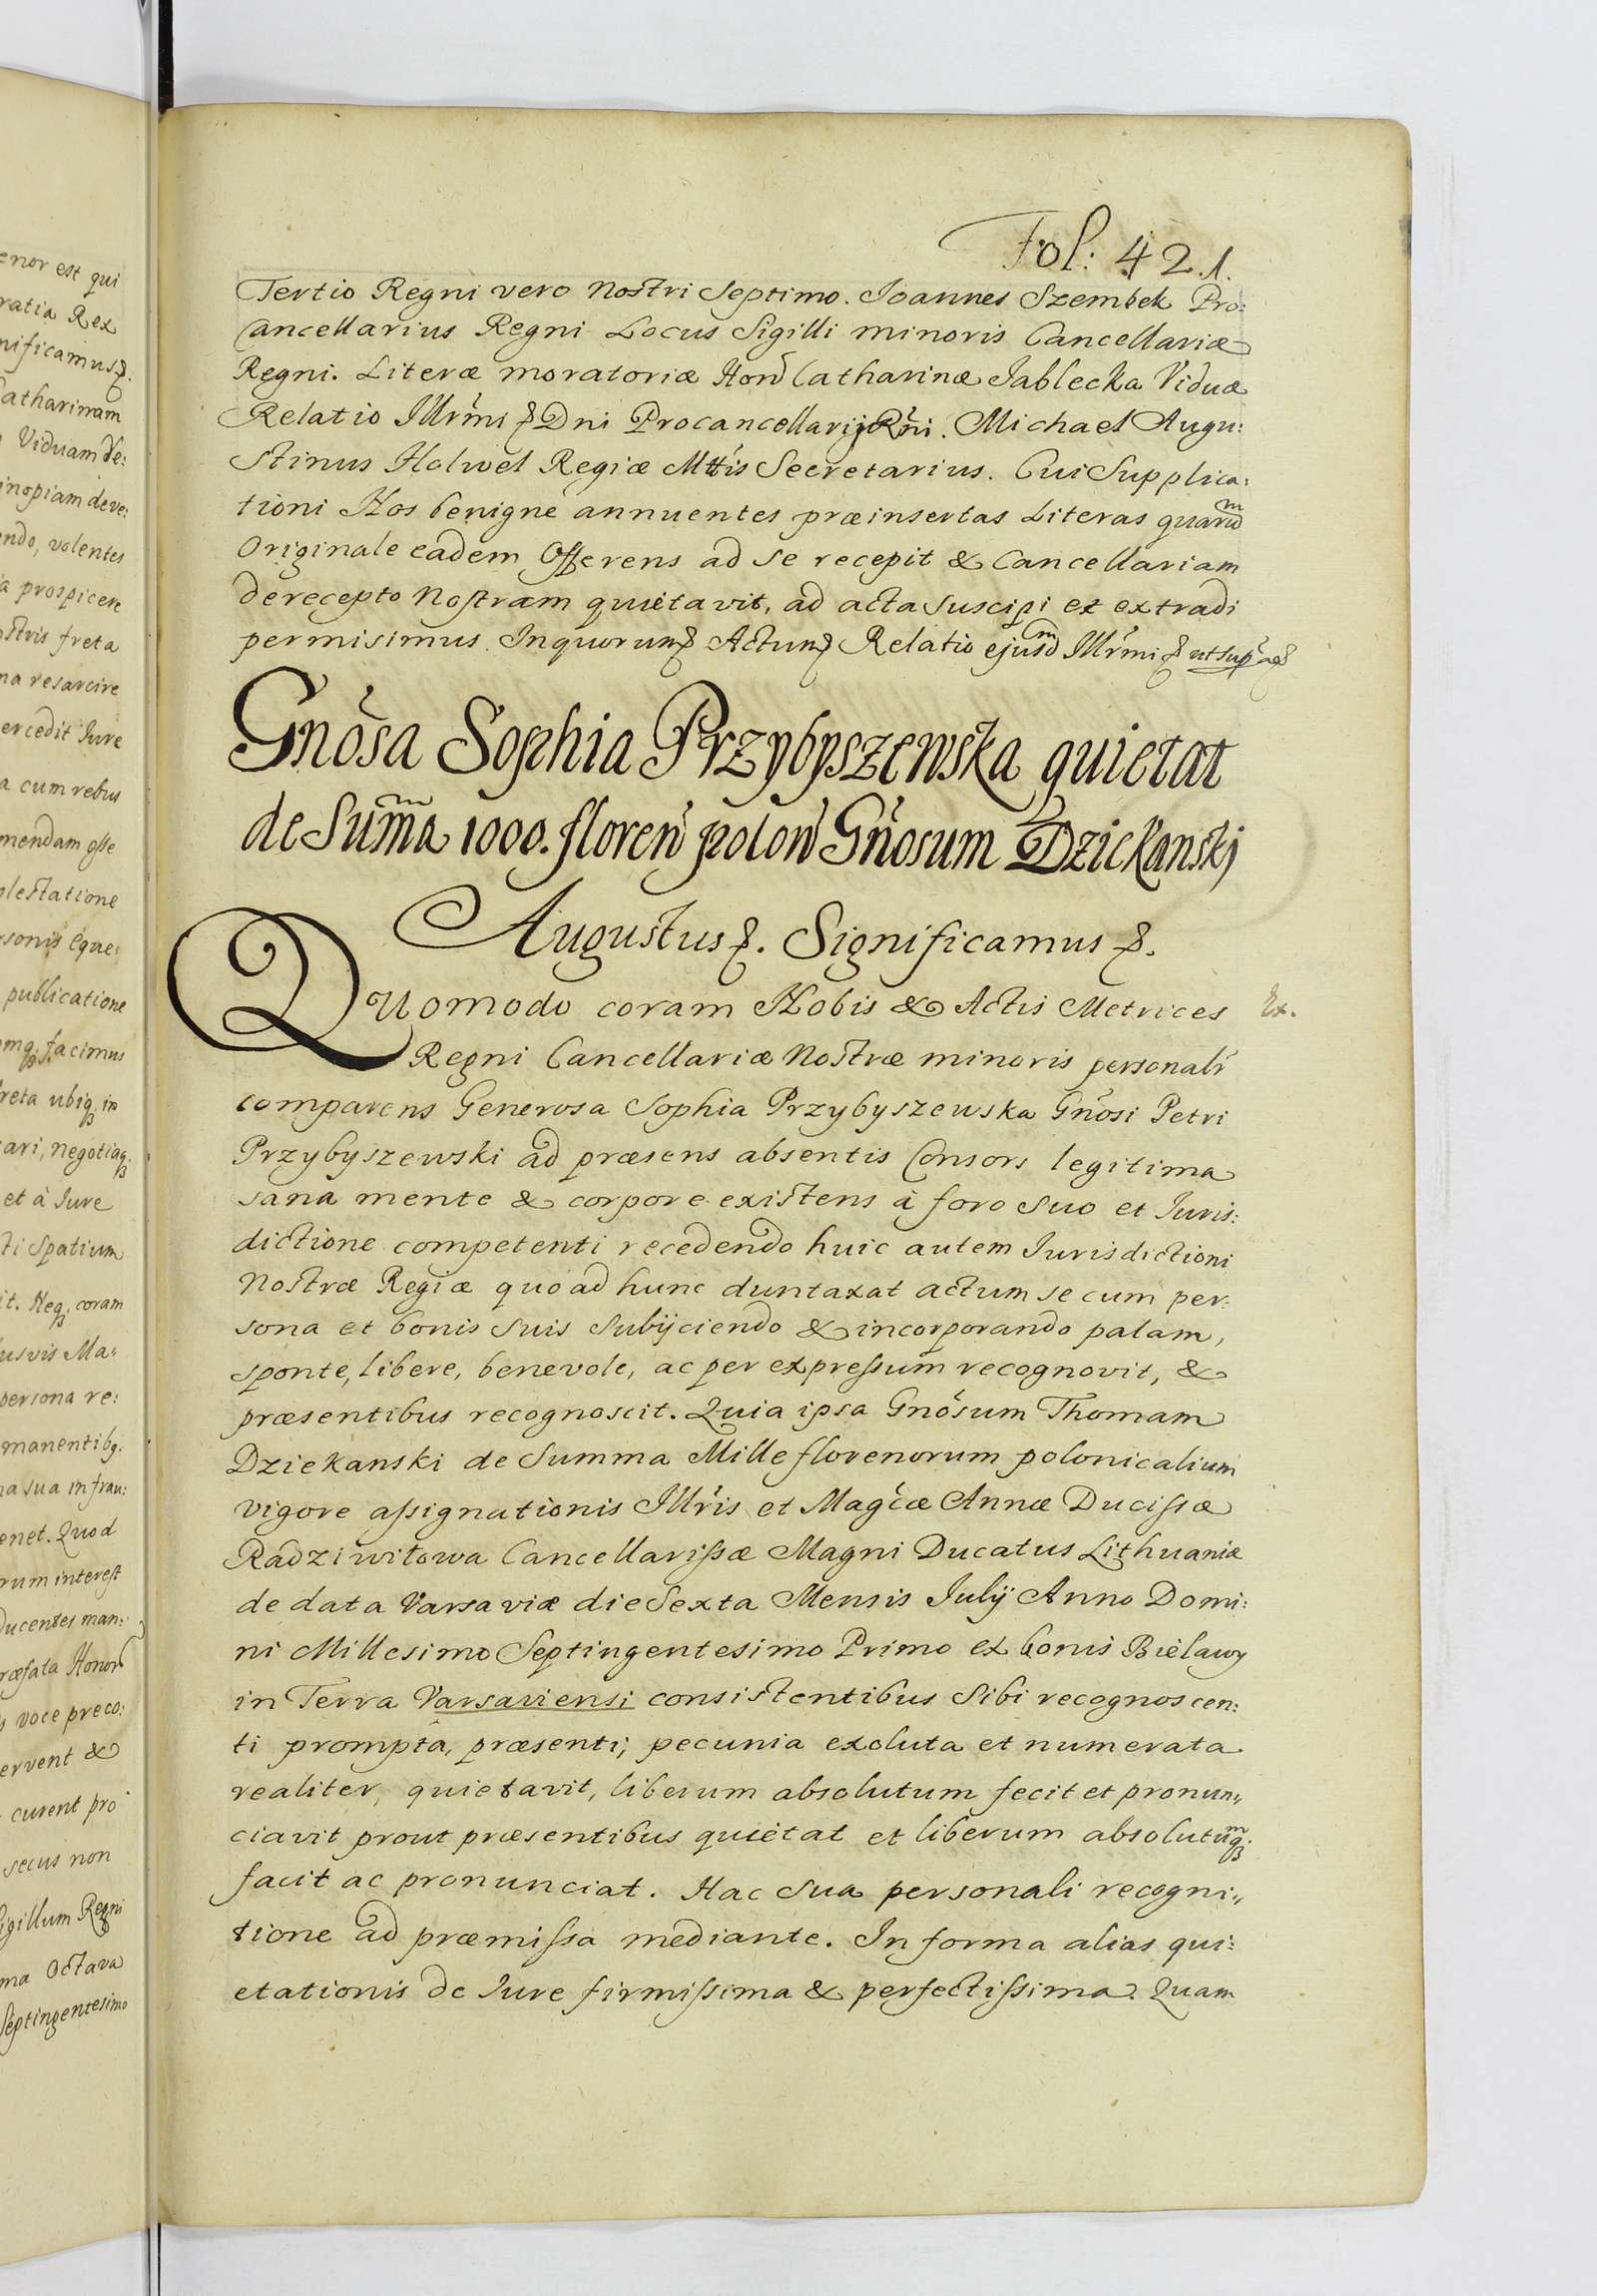 enor est qui
ratia Rex
nificamus
atharinam
Viduam de:
inopiam deve:
endo, volentes
a prospicere
ostris freta
na resarcire
ercedit Jure
a cum rebus
mendam esse
olestatione
sonis Eque:
publicatione
mq. facimus
reta ubiq. in
cari, negotiaq.
et à Jure
ti Spatium
it. Neq. coram
usvis Ma:
persona re:
manentibq.
a sua in frau:
enet. Quod
rum interest
ducentes man:
ræfata Honor
s voce preco:
ervent &
curent pro
secus non
Sigillum Regni
ma Octava
Septingentesimo
Fol: 421.
Tertio Regni vero Nostri Septimo. Joannes Szembek Pro:
Cancellarius Regni Locus Sigilli minoris Cancellariæ
Regni. Literæ moratoriæ Hon Catharinæ Jablecka Viduæ
Relatio Illrmi & Dni Procancellarij Rni. Michael Augu:
stinus Holwel Regiæ Mttis Secretarius. Cui Supplica:
tioni Nos benigne annuentes præinsertas Literas quarud̄m
Originale eadem Offerens ad se recepit & Cancellariam
de recepto Nostram quietavit, ad acta suscipi et extradi
permisimus. In quorum & Actum & Relatio ejusdm Illrmi & ut supra &
Gnosa Sophia Przybyszewska quietat
de Suma 1000. floren polon Gnosum Dziekanskj
Augustus &. Significamus &.
Quomodo coram Nobis & Actis Metrices
Ex.
Regni Cancellariæ Nostræ minoris personalr
comparens Generosa Sophia Przybyszewska Gnosi Petri
Przybyszewski ad præsens absentis Consors legitima
sana mente & corpore existens à foro suo et Juris:
dictione competenti recedendo huic autem Jurisdictioni
Nostræ Regiæ quo ad hunc duntaxat actum se cum per:
sona et bonis suis subijciendo & incorporando palam,
sponte, libere, benevole, ac per expressum recognovit, &
præsentibus recognoscit. Quia ipsa Gnosum Thomam
Dziekanski de Summa Mille florenorum polonicalium
vigore assignationis Illris et Magcæ Annæ Ducissæ
Radziwiłowa Cancellarissæ Magni Ducatus Lithuaniæ
de data Varsaviæ die Sexta Mensis Julij Anno Domi:
ni Millesimo Septingentesimo Primo ex bonis Bielawy
in Terra Varsaviensi consistentibus Sibi recognoscen:
ti prompta, præsenti, pecunia exoluta et numerata
realiter, quietavit, liberum absolutum fecit et pronun„
ciavit prout præsentibus quietat et liberum absolutumq.
facit ac pronunciat. Hac sua personali recogni„
tione ad præmissa mediante. In forma alias qui:
etationis de Jure firmissima & perfectissima. Quam